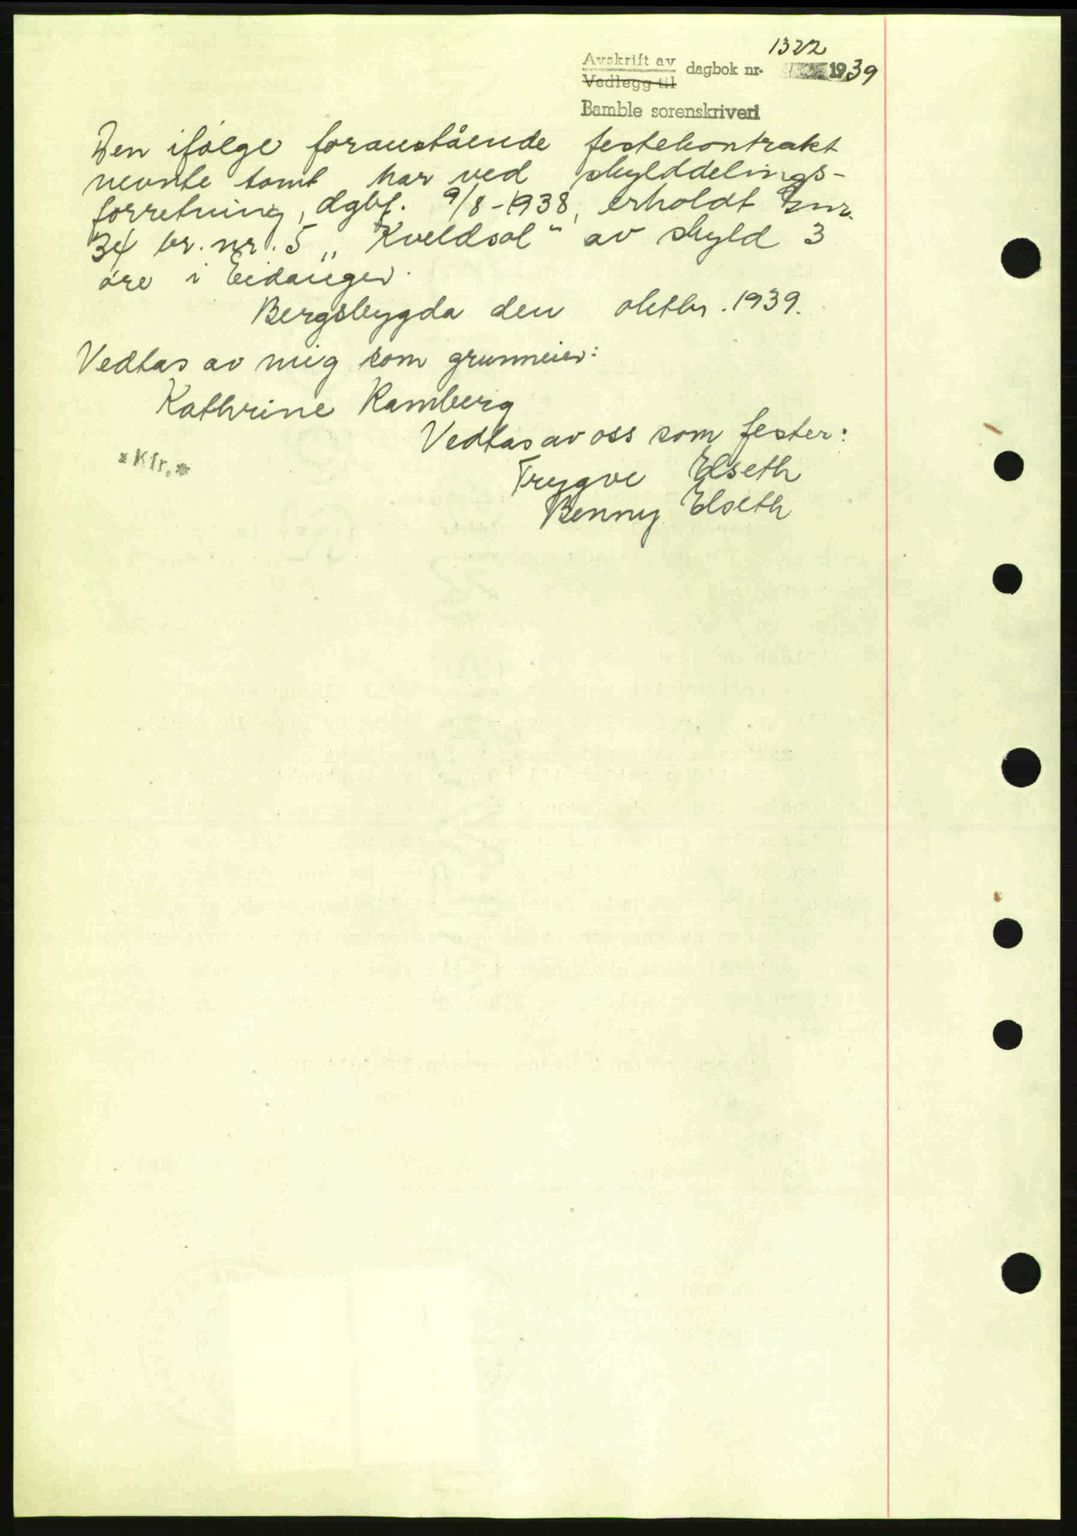 1322
Avskrift av dagbok nr. 1939
Vedlegg til
Bamble sorenskriveri
Den ifølge foranstående festekontrakt
nevnte tomt har ved skylddelings-
forretning, dgbf. 9/8-1938, erholdt Gnr.
34 br. nr. 5 „Kveldsol“ av skyld 3
øre i Eidanger.
Bergsbygda den oktbr. 1939.
Vedtas av mig som grunneier:
Kathrine Ramberg
Vedtas av oss som fester:
* Kfr. *
Trygve Elseth
Benny Elseth